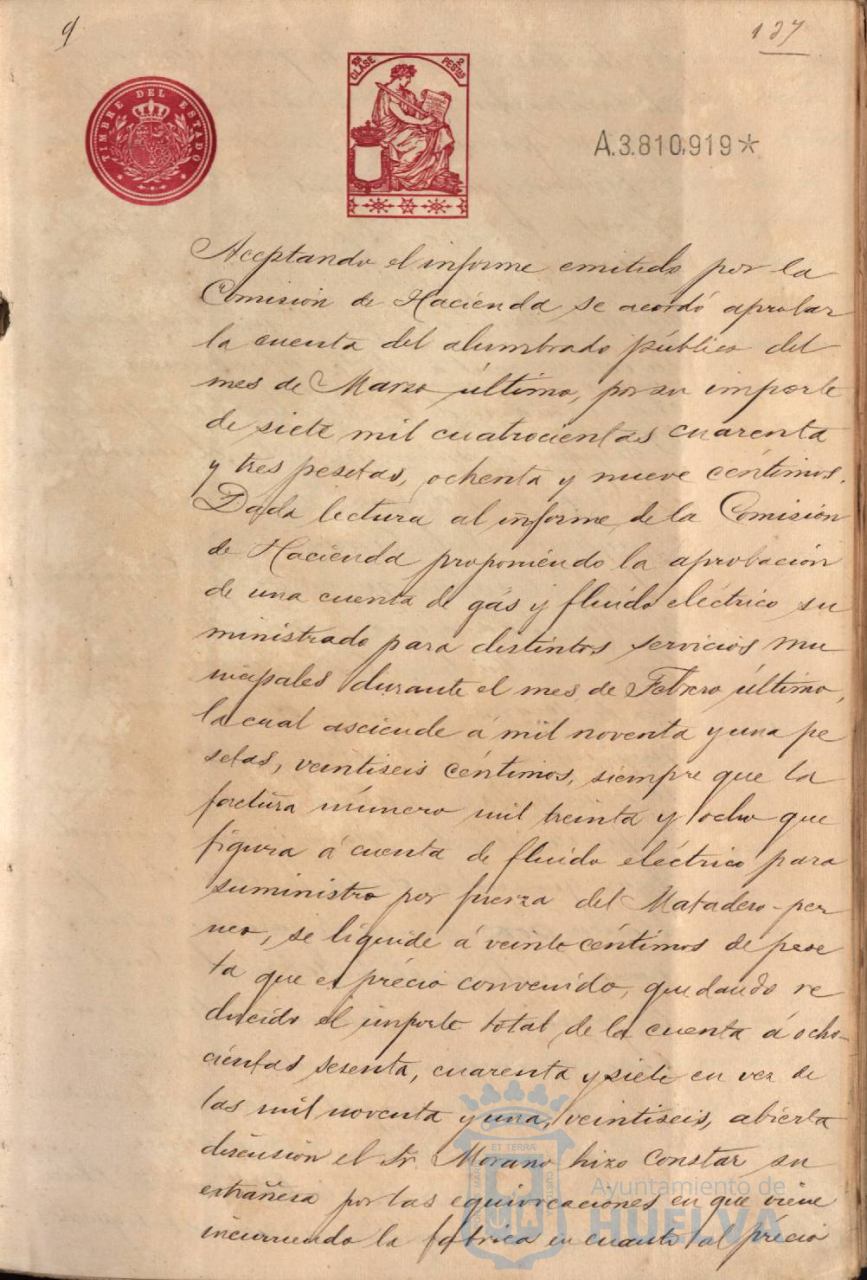 9
137
TIMBRE DEL ESTADO
10ª CLASE 2 PESETAS
A.3.810.919*
Aceptando el informe emitido por la
Comisión de Hacienda se acordó aprobar
la cuenta del alumbrado público del
mes de Marzo último, por su importe
de siete mil cuatrocientas cuarenta
y tres pesetas, ochenta y nueve céntimos.
Dada lectura al informe de la Comisión
de Hacienda proponiendo la aprobación
de una cuenta de gás y fluido eléctrico su
ministrado para distintos servicios mu
nicipales durante el mes de Febrero último,
la cual asciende á mil noventa y una pe
setas, veintiseis céntimos, siempre que la
factura número mil treinta y ocho que
figura á cuenta de fluido eléctrico para
suministro por fuerza del Matadero-per
neo, se liquide á veinte céntimos de pese
ta que es précio convenido, quedando re
ducido el importe total de la cuenta á ocho-
cientas sesenta, cuarenta y siete en vez de
las mil noventa y una, veintiseis, abierta
discusión el Sr. Morano hizo constar su
estrañesa por las equivocaciones en que viene
incurriendo la fábrica en cuanto al précio
Ayuntamiento de
HUELVA